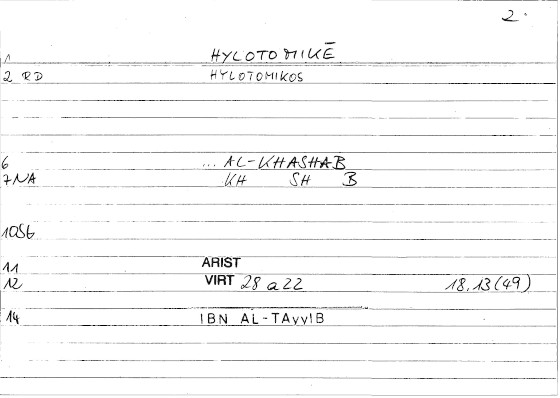 2.
1 HYLOTOMIKĒ
2 RD HYLOTOMIKOS
6 ... AL-KHASHAB
7 NA KH SH B
10 SG
11 ARIST
12 VIRT 28 a 22 18,13 (49)
14 IBN AL-TAyyIB